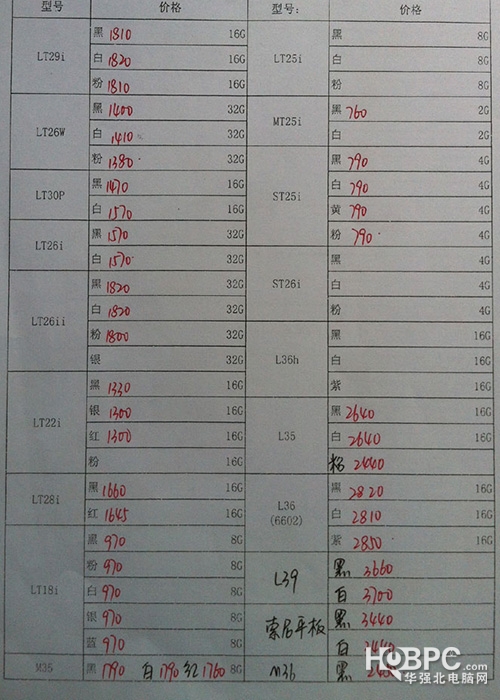 型号 价格 型号： 价格
LT29i
黑 1810 16G
白 1820 16G
粉 1810 16G
LT26W
黑 1400 32G
白 1410 32G
粉 1380 32G
LT30P
黑 1470 16G
白 1570 16G
LT26i
黑 1570 32G
白 1570 32G
LT26ii
黑 1820 32G
白 1820 32G
粉 1800 32G
银 32G
LT22i
黑 1330 16G
银 1300 16G
红 1300 16G
粉 16G
LT28i
黑 1660 16G
红 1645 16G
LT18i
黑 970 8G
粉 970 8G
白 970 8G
银 970 8G
蓝 970 8G
M35
黑 1790 白 1790 红 1760 8G
LT25i
黑 8G
白 8G
粉 8G
MT25i
黑 760 2G
白 2G
ST25i
黑 790 4G
白 790 4G
黄 790 4G
粉 790 4G
ST26i
黑 4G
白 4G
粉 4G
L36h
黑 16G
白 16G
紫 16G
L35
黑 2640 16G
白 2640 16G
2440
L36
(6602)
黑 2820 16G
白 2810 16G
紫 2850 16G
L39
黑 3660
白 3700
索尼平板
黑 3440
白
M36
黑
HQBPC.com
华强北电脑网